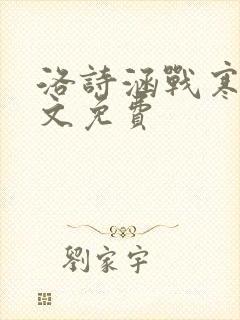 洛詩涵戰寒
文免費
劉家宇